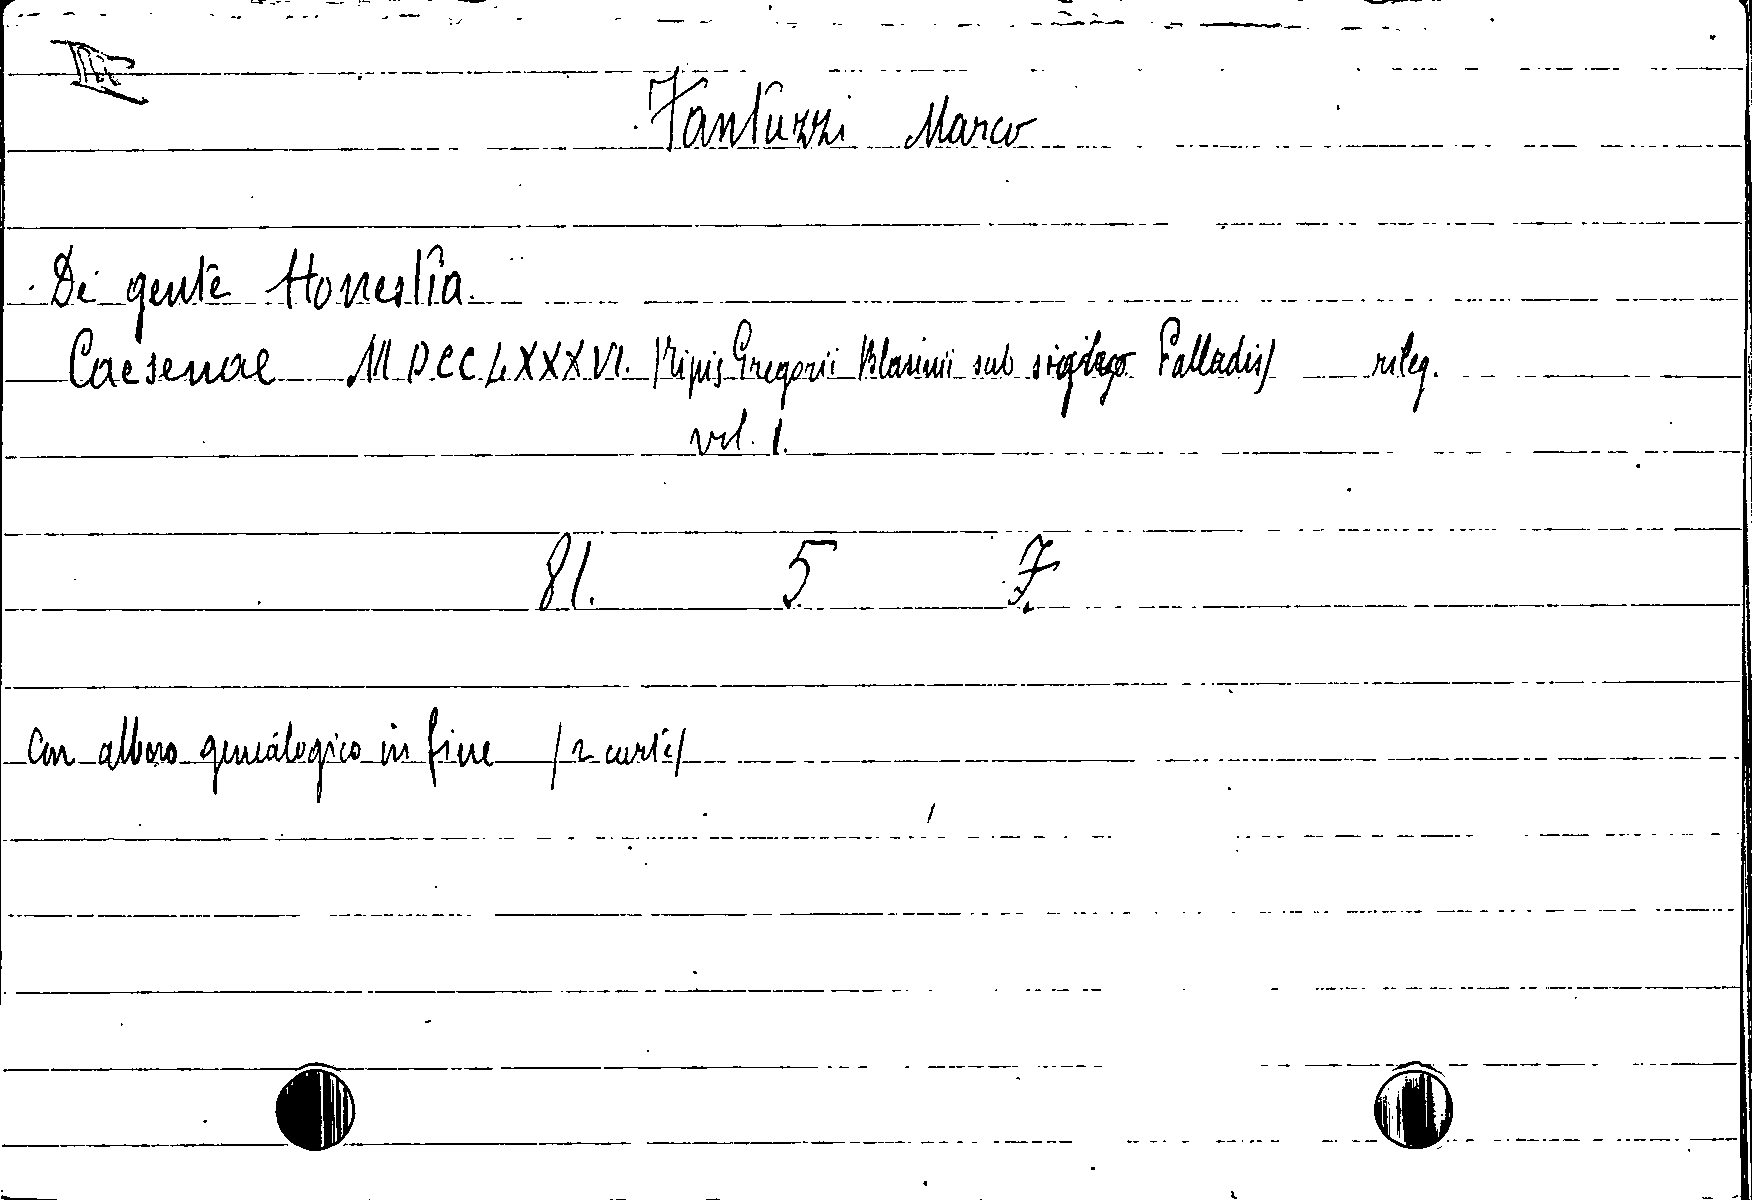 III
Fantuzzi Marco
De gente Honestia
Caesenae MDCCLXXXVI. /Tipis Gregorii Blasinii sub Palladis/ rileg.
vol. 1.
81. 5 7.
con albero genealogico in fine /2 carte/